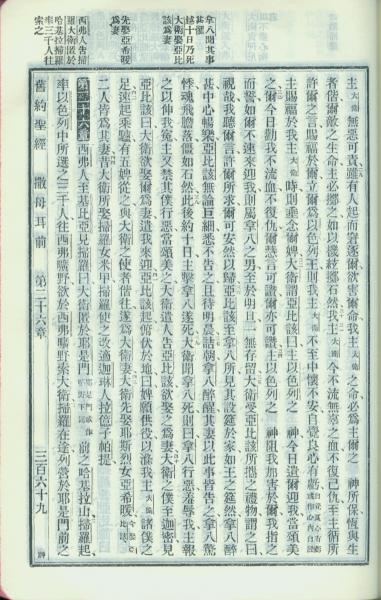 拿八聞其事
甚懼
越十日乃死
大衛娶亞比
該為妻
先娶亞希暖
為妻
西弗人告掃
羅大衛匿於
哈基拉掃羅
率三千人往
索之
主大衛無惡可責雖有人起而窘逐爾欲害爾命我主大衛之命必為爾之主神所保恆與生
者偕爾敵之生命主必擲之如以機絃擲石然我主大衛今不流無辜之血不復己仇至主循所
許爾之言賜福於爾立爾為以色列王則我主大衛不至中懷不安自覺良心有虧
主賜福於我主大衛時則垂念爾婢大衛謂亞比該曰主以色列之神今日遣爾迎我當頌美
之爾今日勸我不流血不復仇爾慧言可讚爾亦可讚主以色列之神阻我加害於爾我指之
而誓如爾不速來迎我則屬拿八之男至於明旦一無存留大衛受亞比該所攜之禮物謂之曰
視哉我聽爾言許爾所求爾可安然以歸亞比該至拿八所見其設筵於家如王之筵然拿八醉
甚中心暢樂亞比該無論巨細悉不告之日待明晨詰朝拿八醉醒其妻以此事皆告之拿八驚
甚魂飛膽落僵如石然此後約十日主擊拿八遂死大衛聞拿八死則曰拿八行惡羞辱我主報
之以伸我冤主又禁其僕行惡當頌美之大衛遣人告亞比該欲娶之為妻大衛之僕至迦密見
亞比該曰大衛欲娶爾為妻遣我來迎亞比該起俯伏於地曰婢願供役以濯我主大衛諸僕之
足遂起乘驢有五婢從之與大衛之使者偕往遂為大衛妻大衛先娶耶斯烈女亞希暖
二人皆為其妻昔大衛所娶掃羅女米甲掃羅使之改適迦琳人拉億子帕提
第二十六章西弗人至基比亞見掃羅曰大衛匿於耶是門前之哈基拉山掃羅起
率以色列中所選之三千人往西弗曠野欲於西弗曠野索大衛掃羅在途列營於耶是門前之
舊約聖經 撒母耳前 第二十六章 三百六十九